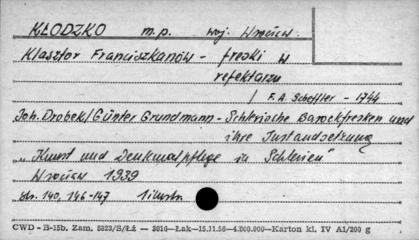 KŁODZKO m.p. woj. Wrocław
Klasztor Franciszkanów - freski w
refektarzu
/ F. A. Scheffler - 1744
Joh. Drobek/Günter Grundmann - Schlesische Barockfresken und
ihre Instandsetzung
„Kunst und Denkmalpflege in Schlesien"
Wrocław 1939
str. 140, 146-147 1 ilustr.
CWD - B-15b. Zam. 5823/S/Łź — 3016—Łak—15.11.56—4.200.000—Karton kl. IV A1/200 g